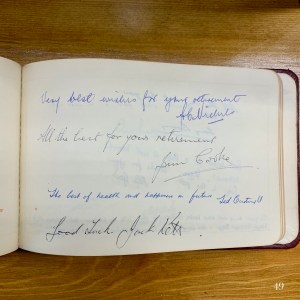 Very best wishes for your retirement
All the best for your retirement
Jim Cooke
The best of health and happiness in future Ted
Good Luck. Jack
49